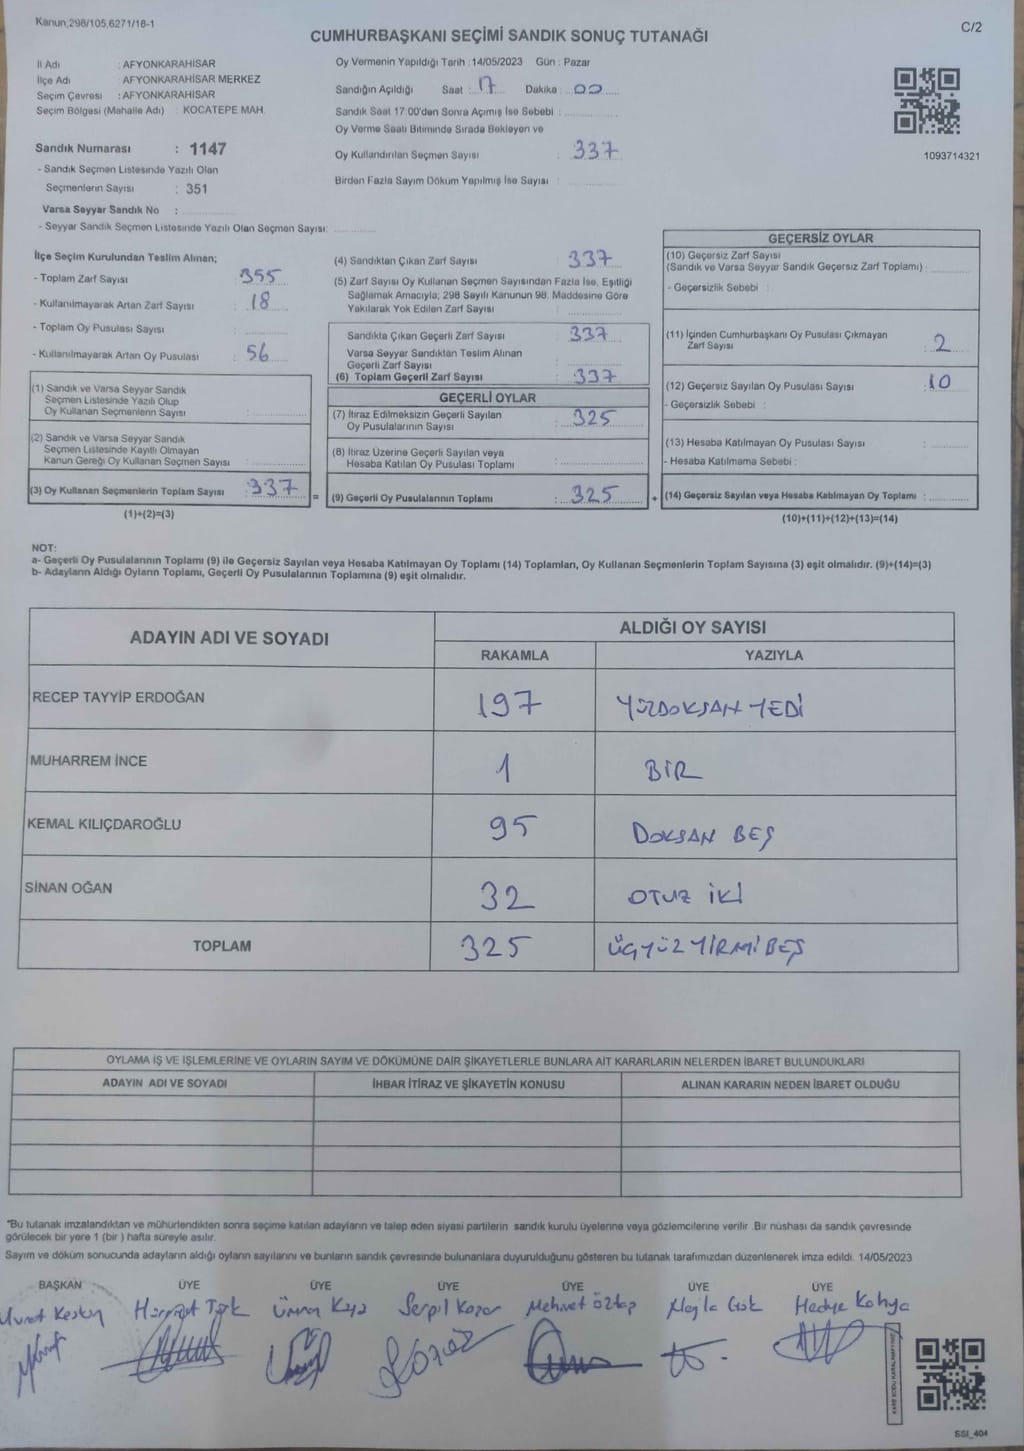 Kanun,298/105,6271/18-1
C/2
CUMHURBAŞKANI SEÇİMİ SANDIK SONUÇ TUTANAĞI
İl Adı : AFYONKARAHİSAR
İlçe Adı : AFYONKARAHİSAR MERKEZ
Seçim Çevresi : AFYONKARAHİSAR
Seçim Bölgesi (Mahalle Adı) : KOCATEPE MAH.
Sandık Numarası : 1147
- Sandık Seçmen Listesinde Yazılı Olan
Seçmenlerin Sayısı : 351
Varsa Seyyar Sandık No :
- Seyyar Sandık Seçmen Listesinde Yazılı Olan Seçmen Sayısı:
Oy Vermenin Yapıldığı Tarih :14/05/2023 Gün : Pazar
Sandığın Açıldığı Saat : 17 Dakika : 00
Sandık Saat 17:00'den Sonra Açımış İse Sebebi :
Oy Verme Saati Bitiminde Sırada Bekleyen ve
Oy Kullandırılan Seçmen Sayısı : 337
Birden Fazla Sayım Döküm Yapılmış İse Sayısı :
1093714321
İlçe Seçim Kurulundan Teslim Alınan;
- Toplam Zarf Sayısı : 355
- Kullanılmayarak Artan Zarf Sayısı : 18
- Toplam Oy Pusulası Sayısı :
- Kullanılmayarak Artan Oy Pusulası : 56
(1) Sandık ve Varsa Seyyar Sandık
Seçmen Listesinde Yazılı Olup
Oy Kullanan Seçmenlerin Sayısı :
(2) Sandık ve Varsa Seyyar Sandık
Seçmen Listesinde Kayıtlı Olmayan
Kanun Gereği Oy Kullanan Seçmen Sayısı :
(3) Oy Kullanan Seçmenlerin Toplam Sayısı : 337
(1)+(2)=(3)
(4) Sandıktan Çıkan Zarf Sayısı : 337
(5) Zarf Sayısı Oy Kullanan Seçmen Sayısından Fazla İse, Eşitliği
Sağlamak Amacıyla; 298 Sayılı Kanunun 98. Maddesine Göre
Yakılarak Yok Edilen Zarf Sayısı :
Sandıkta Çıkan Geçerli Zarf Sayısı : 337
Varsa Seyyar Sandıktan Teslim Alınan
Geçerli Zarf Sayısı :
(6) Toplam Geçerli Zarf Sayısı : 337
GEÇERLİ OYLAR
(7) İtiraz Edilmeksizin Geçerli Sayılan
Oy Pusulalarının Sayısı : 325
(8) İtiraz Üzerine Geçerli Sayılan veya
Hesaba Katılan Oy Pusulası Toplamı :
= (9) Geçerli Oy Pusulalarının Toplamı : 325 +
GEÇERSİZ OYLAR
(10) Geçersiz Zarf Sayısı
(Sandık ve Varsa Seyyar Sandık Geçersiz Zarf Toplamı) :
- Geçersizlik Sebebi :
(11) İçinden Cumhurbaşkanı Oy Pusulası Çıkmayan
Zarf Sayısı : 2
(12) Geçersiz Sayılan Oy Pusulası Sayısı : 10
- Geçersizlik Sebebi :
(13) Hesaba Katılmayan Oy Pusulası Sayısı :
- Hesaba Katılmama Sebebi :
(14) Geçersiz Sayılan veya Hesaba Katılmayan Oy Toplamı :
(10)+(11)+(12)+(13)=(14)
NOT:
a- Geçerli Oy Pusulalarının Toplamı (9) ile Geçersiz Sayılan veya Hesaba Katılmayan Oy Toplamı (14) Toplamları, Oy Kullanan Seçmenlerin Toplam Sayısına (3) eşit olmalıdır. (9)+(14)=(3)
b- Adayların Aldığı Oyların Toplamı, Geçerli Oy Pusulalarının Toplamına (9) eşit olmalıdır.
ADAYIN ADI VE SOYADI
ALDIĞI OY SAYISI
RAKAMLA YAZIYLA
RECEP TAYYİP ERDOĞAN 197 YÜZDOKSAN YEDİ
MUHARREM İNCE 1 BİR
KEMAL KILIÇDAROĞLU 95 DOKSAN BEŞ
SİNAN OĞAN 32 OTUZ İKİ
TOPLAM 325 ÜÇYÜZ YİRMİ BEŞ
OYLAMA İŞ VE İŞLEMLERİNE VE OYLARIN SAYIM VE DÖKÜMÜNE DAİR ŞİKAYETLERLE BUNLARA AİT KARARLARIN NELERDEN İBARET BULUNDUKLARI
ADAYIN ADI VE SOYADI İHBAR İTİRAZ VE ŞİKAYETİN KONUSU ALINAN KARARIN NEDEN İBARET OLDUĞU
"Bu tutanak imzalandıktan ve mühürlendikten sonra seçime katılan adayların ve talep eden siyasi partilerin sandık kurulu üyelerine veya gözlemcilerine verilir .Bir nüshası da sandık çevresinde
görülecek bir yere 1 (bir ) hafta süreyle asılır.
Sayım ve döküm sonucunda adayların aldığı oyların sayılarını ve bunların sandık çevresinde bulunanlara duyurulduğunu gösteren bu tutanak tarafımızdan düzenlenerek imza edildi. 14/05/2023
BAŞKAN ÜYE ÜYE ÜYE ÜYE ÜYE ÜYE
Murat Keskin Ümran Kaya Serpil Kozar Mehmet Öztap Hediye Kahya
KARE KODU KARALAMAYINIZ
SSI_404